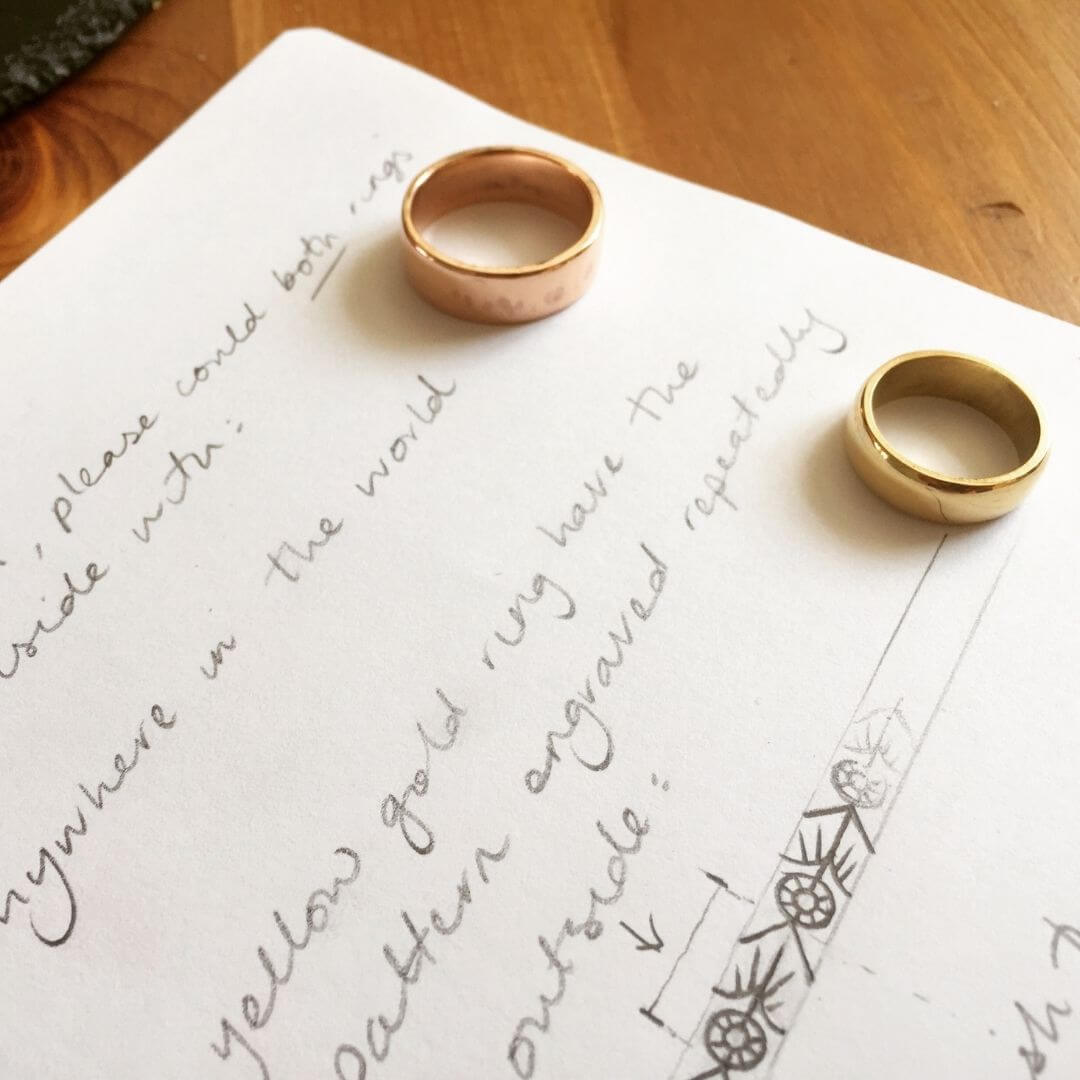 , please could both rings
side with:
nywhere in the world
yellow gold ring have the
pattern engraved repeatedly
outside: